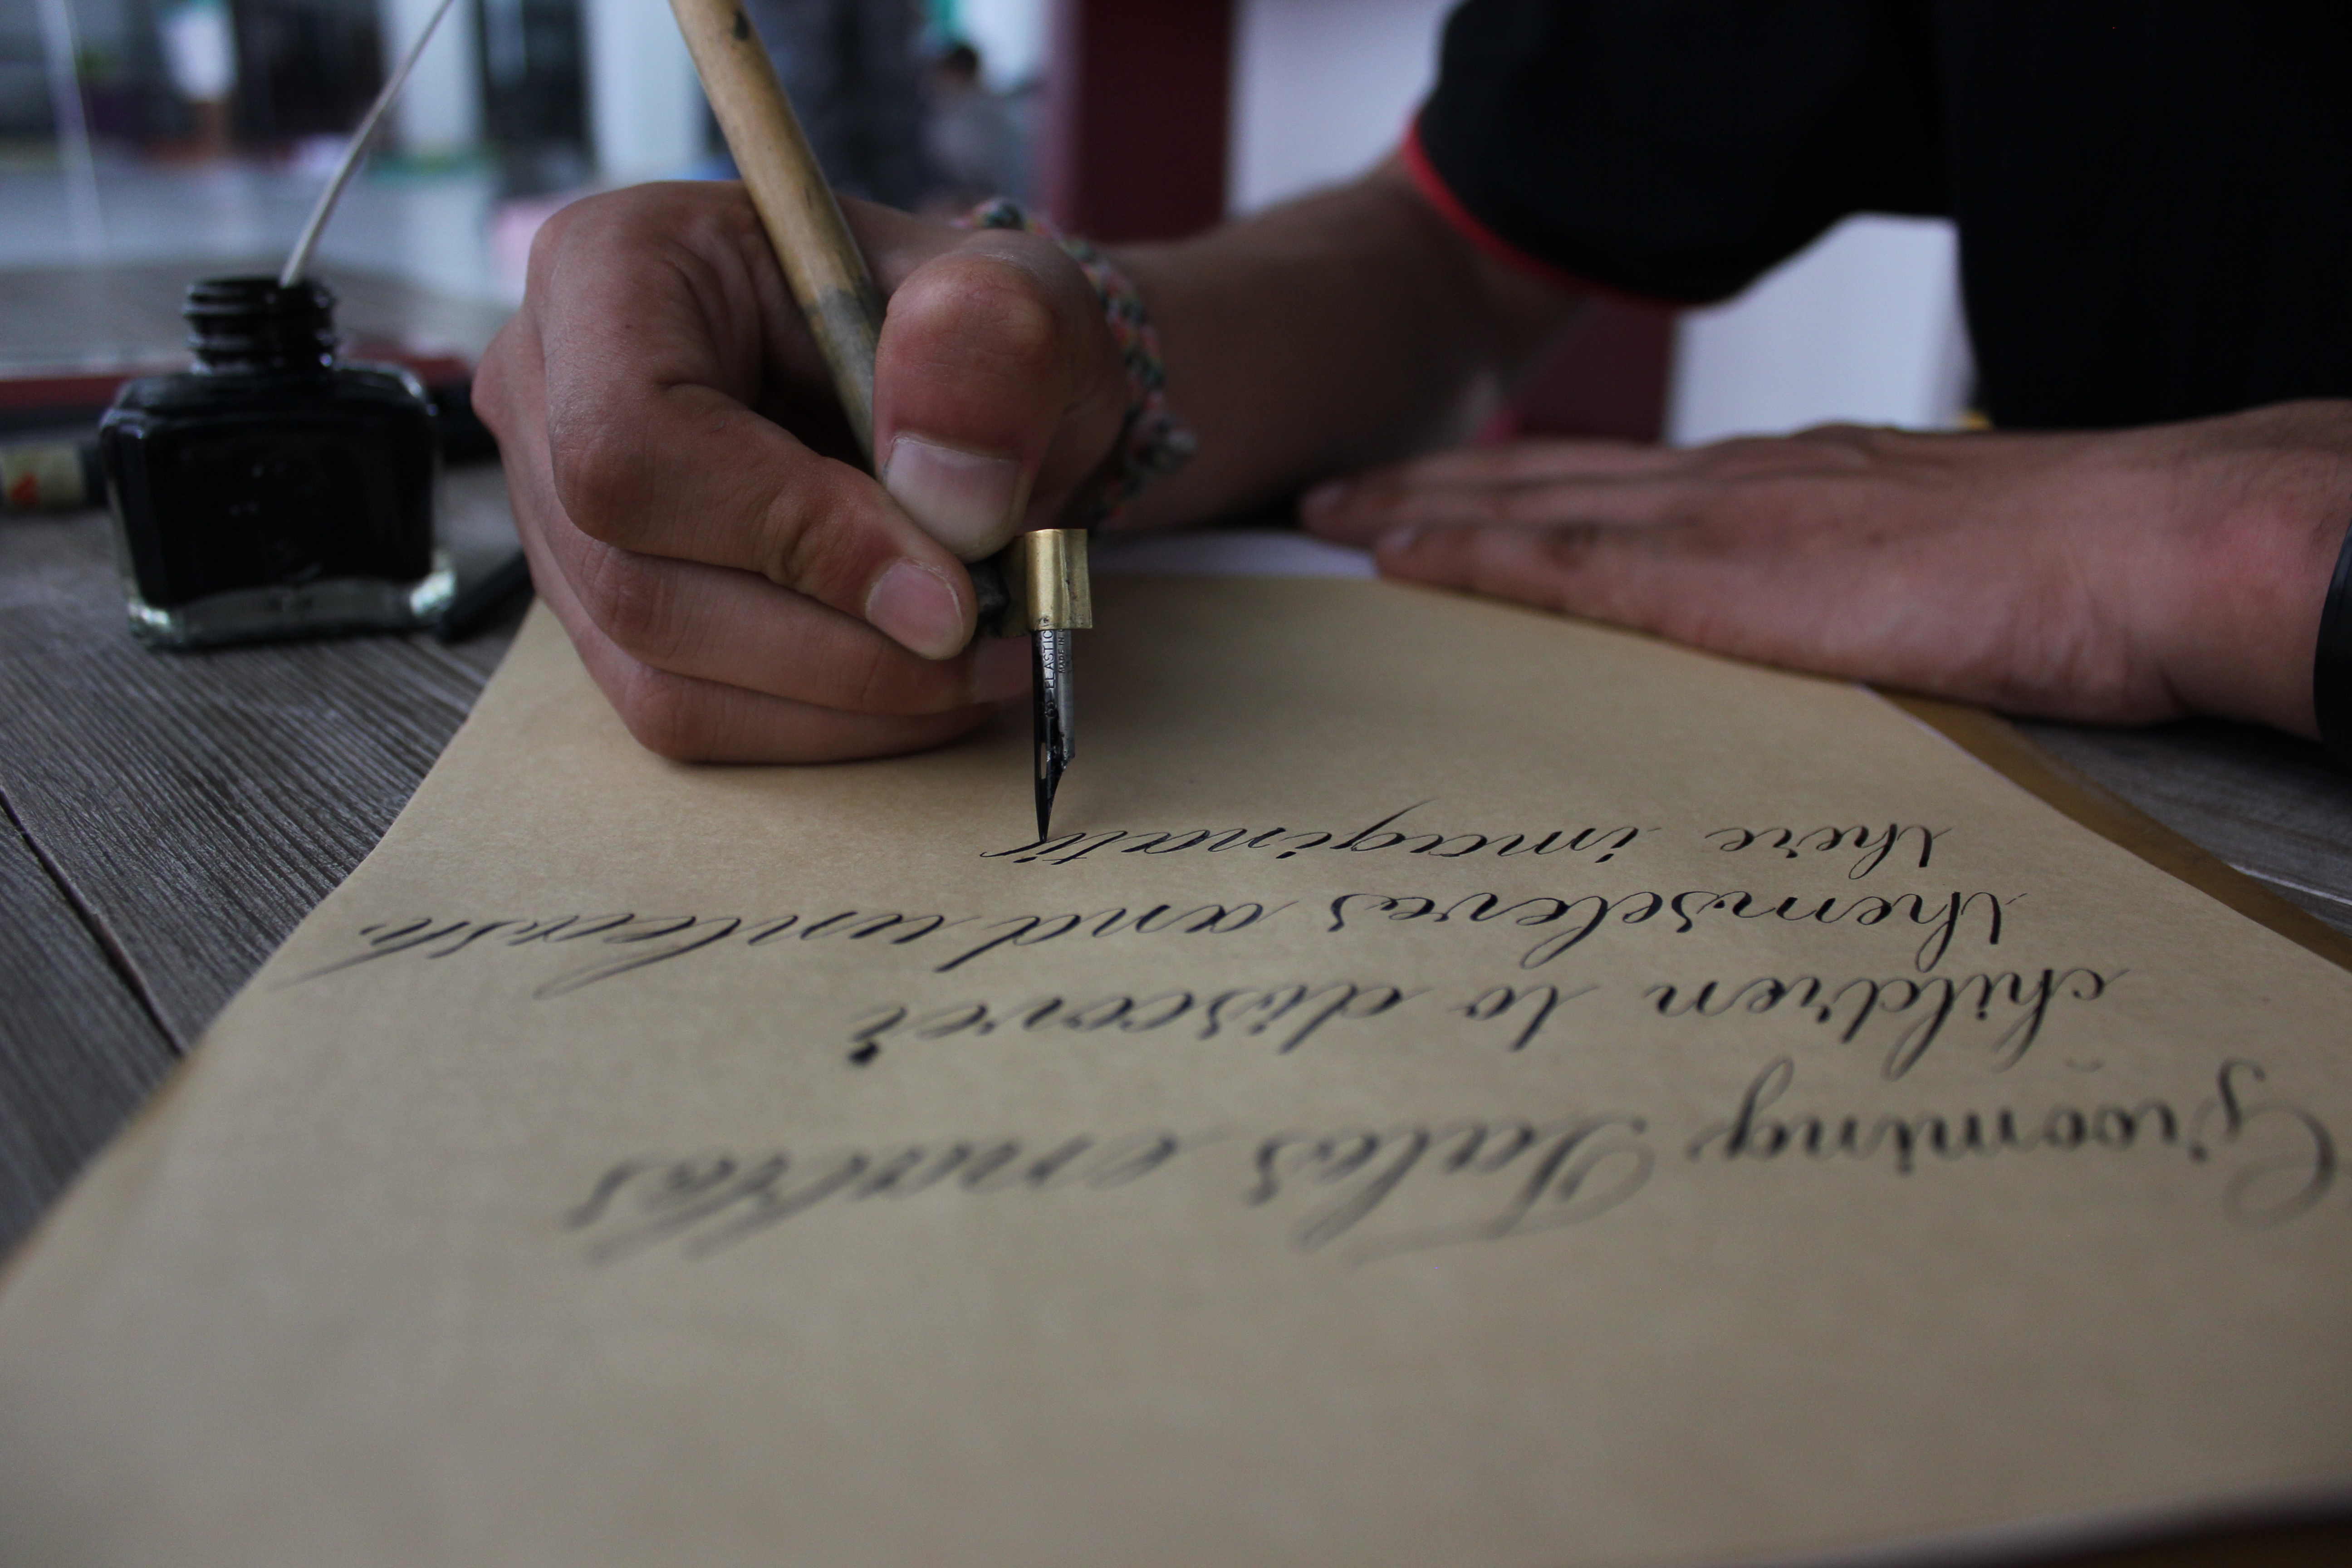 Grooming Tales enables
children to discover
themseleves and unleash
there imaginati